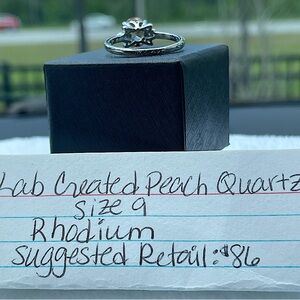 Lab Created Peach Quartz
Size 9
Rhodium
Suggested Retail: $86